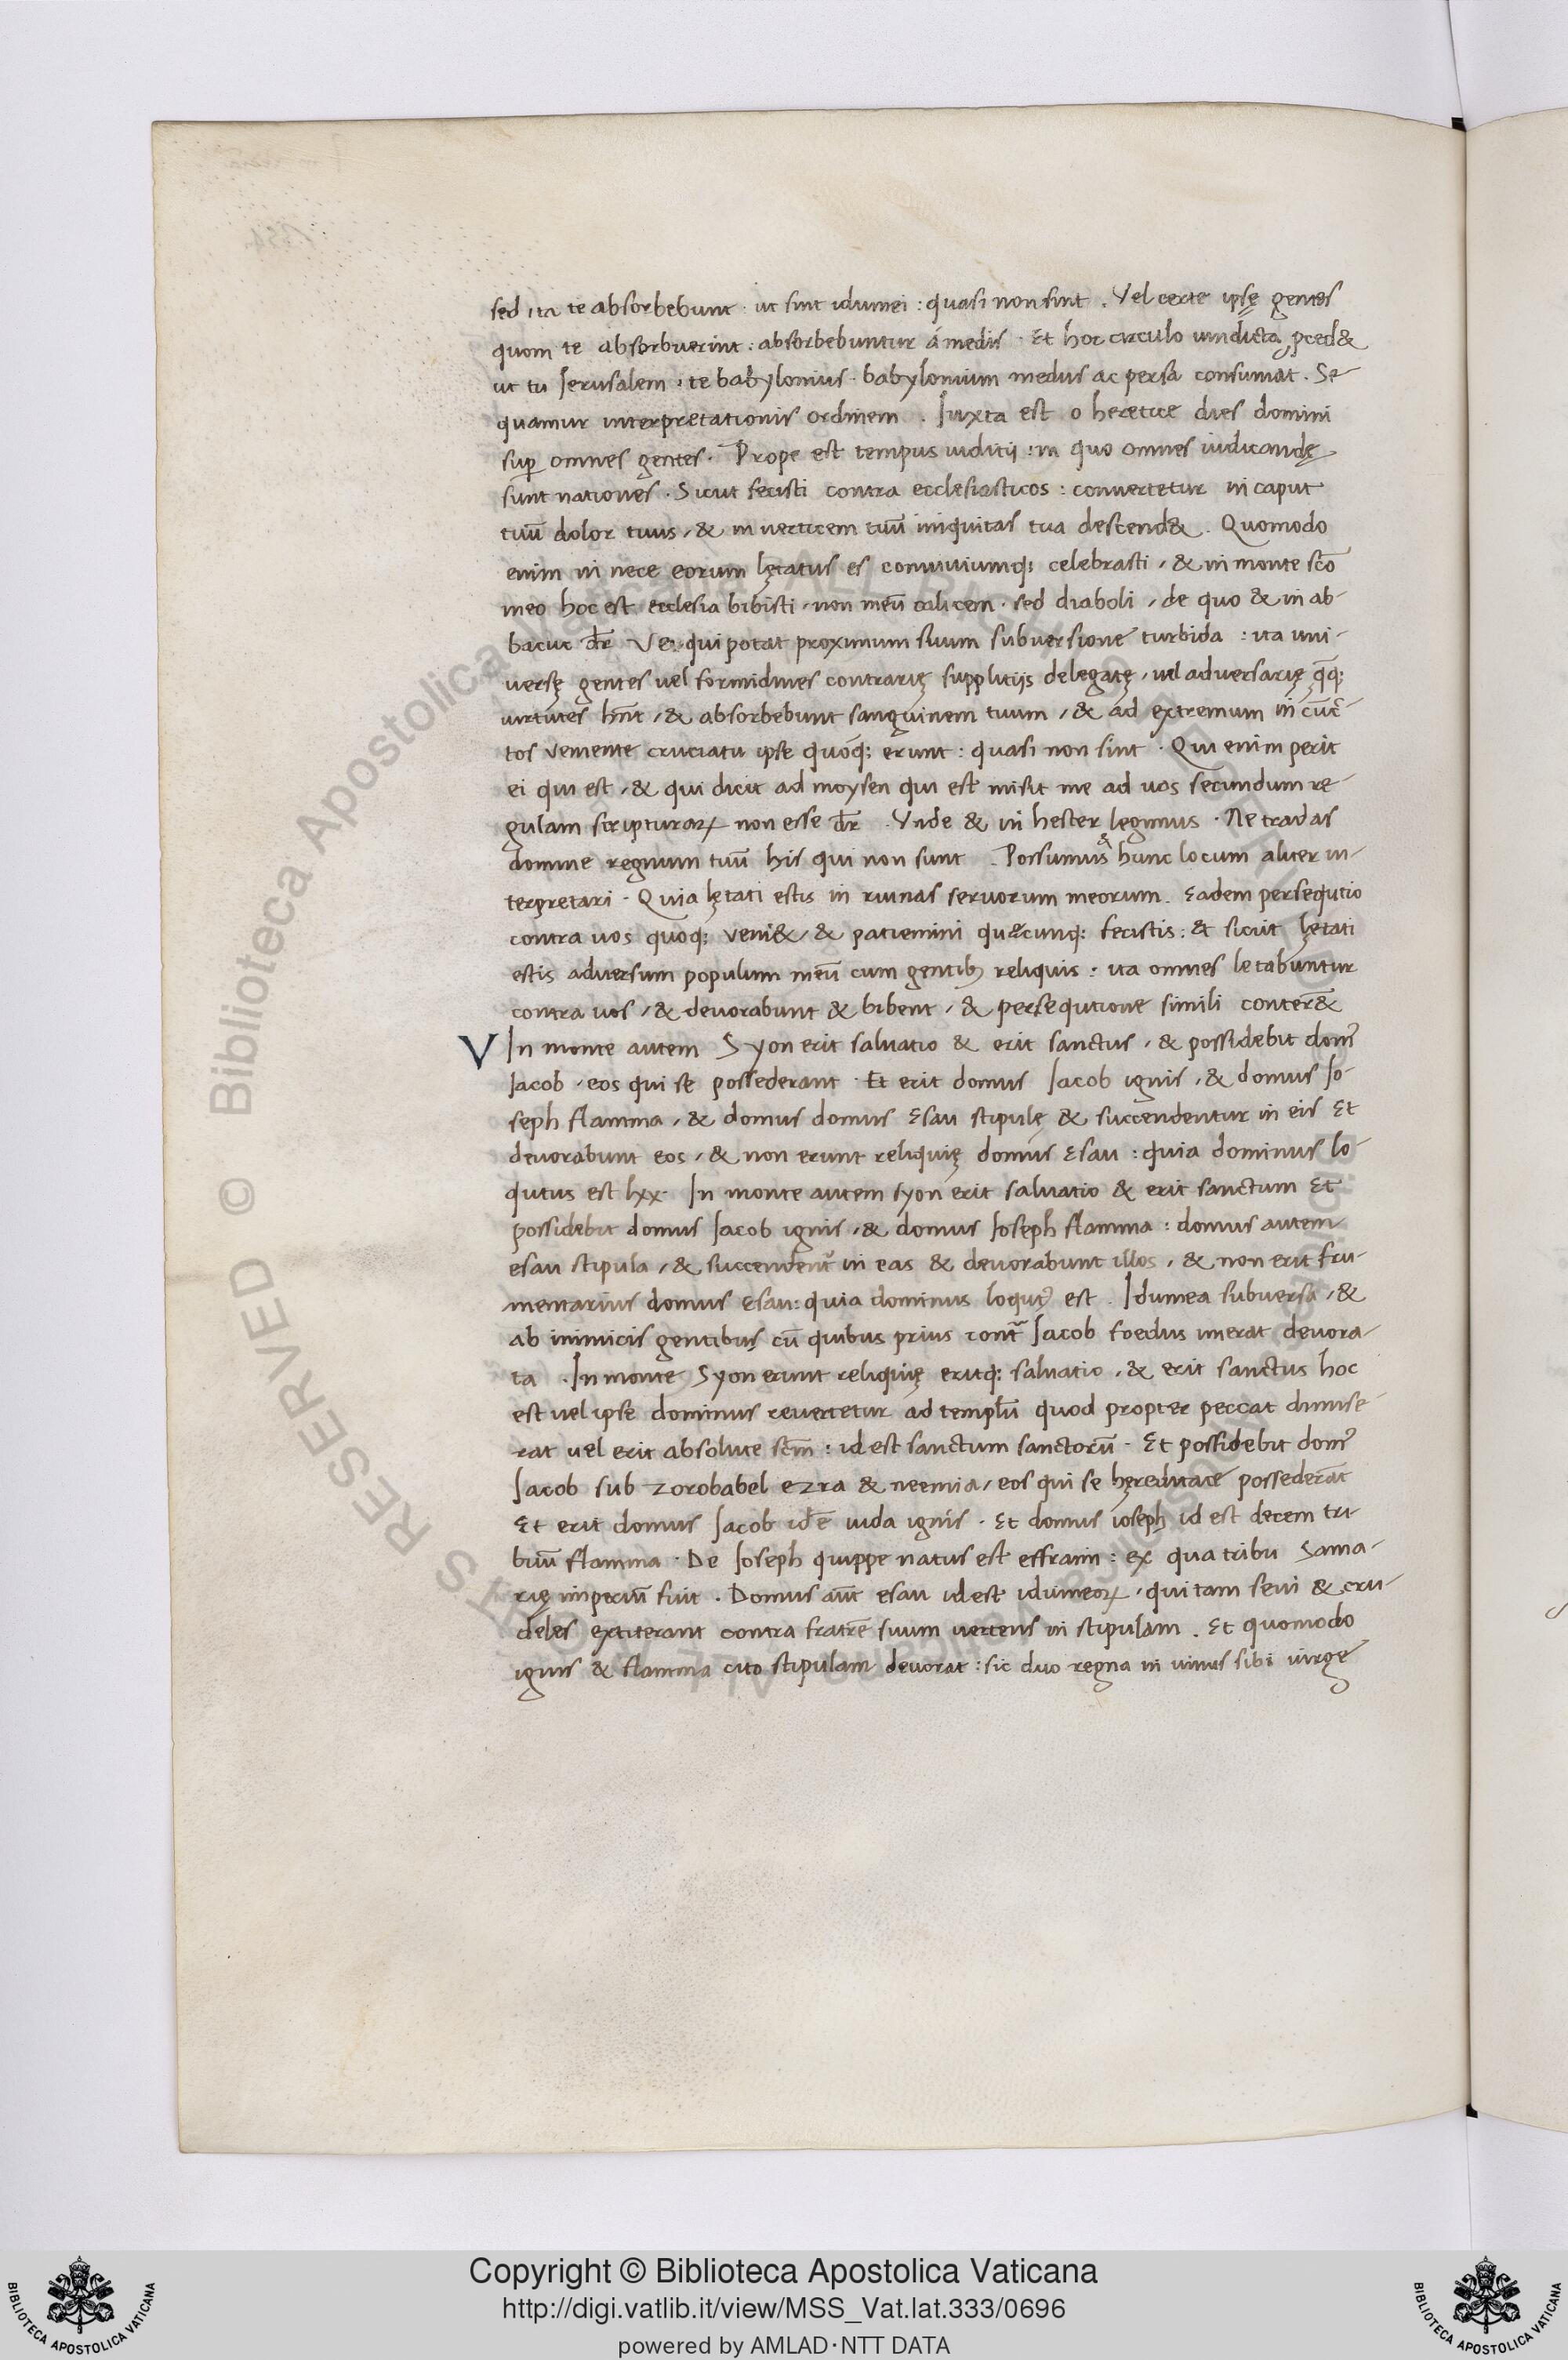 sed ita te absorbebunt · ut sint idumei : quasi non sint . Vel certe ipsę gentes
quom te absorbuerint : absorbebuntur á medis · Et hoc circulo uindicta ꝓced&
ut tu Jerusalem · te babylonius · babylonium medus ac persa consumat . Se-
quamur interpretationis ordinem . Juxta est o heretice dies domini
suꝑ omnes gentes · Prope est tempus iuditij : in quo omnes iudicandę
sunt nationes · Sicut fecisti contra ecclesiasticos : conuertetur in caput
tuū dolor tuus , & in uerticem tuū iniquitas tua descend& . Quomodo
enim in nece eorum lętatus es conuiuiumq; celebrasti , & in monte sc̄o
meo hoc est ecclesia bibisti , non meū calicem · sed diaboli , de quo & in ab-
bacuc dr̄ Ve qui potat proximum suum subuersione turbida : ita uni-
uersę gentes uel formidines contrarię supplitijs delegatę , uel aduersarię q̄q;
uirtutes hn̄t , & absorbebunt sanguinem tuum , & ad extremum in cūc-
tos uemente cruciatu ipse quoq; erunt : quasi non sint · Qui enim perit
ei qui est , & qui dicit ad moysen qui est misit me ad uos secundum re-
gulam scripturaꝝ non esse dr̄ . Vnde & in hester legimus · Ne tradas
domine regnum tuū his qui non sunt . Possumus & hunc locum aliter in-
terpretari · Quia lętati estis in ruinas seruorum meorum . Eadem persequtio
contra uos quoq; ueni& , & patiemini quæcunq; fecistis : et sicut lętati
estis aduersum populum meū cum gentibꝫ reliquis : ita omnes letabuntur
contra uos , & deuorabunt & bibent , & persequtione simili conter&
V In monte autem Syon erit saluatio & erit sanctus , & possidebit domꝰ
Jacob , eos qui se possederant · Et erit domus Jacob ignis , & domus Jo-
seph flamma , & domus domus Esau stipulę & succendentur in eis Et
deuorabunt eos , & non erunt reliquię domus Esau : quia dominus lo-
qutus est lxx · In monte autem syon erit saluatio & erit sanctum Et
possidebit domus Jacob ignis , & domus Joseph flamma : domus autem
esau stipula , & succendent̄ in eas & deuorabunt illos , & non erit fru-
mentarius domus Esau : quia dominus loqutꝰ est . Idumea subuersa , &
ab inimicis gentibus cū quibus prius cont̄ Jacob foedus inierat deuora-
ta . In monte Syon erunt reliquię eritq; saluatio , & erit sanctus hoc
est uel ipse dominus reuertetur ad templū quod propter peccat dimise-
rat uel erit absolute sc̄m : id est sanctum sanctorū · Et possidebit domꝰ
Jacob sub zorobabel ezra & neemia , eos qui se hęreditate possederāt
Et erit domus Jacob id ē iuda ignis · Et domus ioseph id est decem tri-
buū flamma · De Joseph quippe natus est effraim : ex qua tribu Sama-
rię imperiū fuit . Domus aūt esau id est idumeoꝝ , qui tam seui & cru-
deles extiterant contra fratrē suum uertens in stipulam . Et quomodo
ignis & flamma cito stipulam deuorat : sic duo regna in unius sibi uirgę
Copyright © Biblioteca Apostolica Vaticana
http://digi.vatlib.it/view/MSS_Vat.lat.333/0696
powered by AMLAD·NTT DATA
BIBLIOTECA APOSTOLICA VATICANA
BIBLIOTECA APOSTOLICA VATICANA